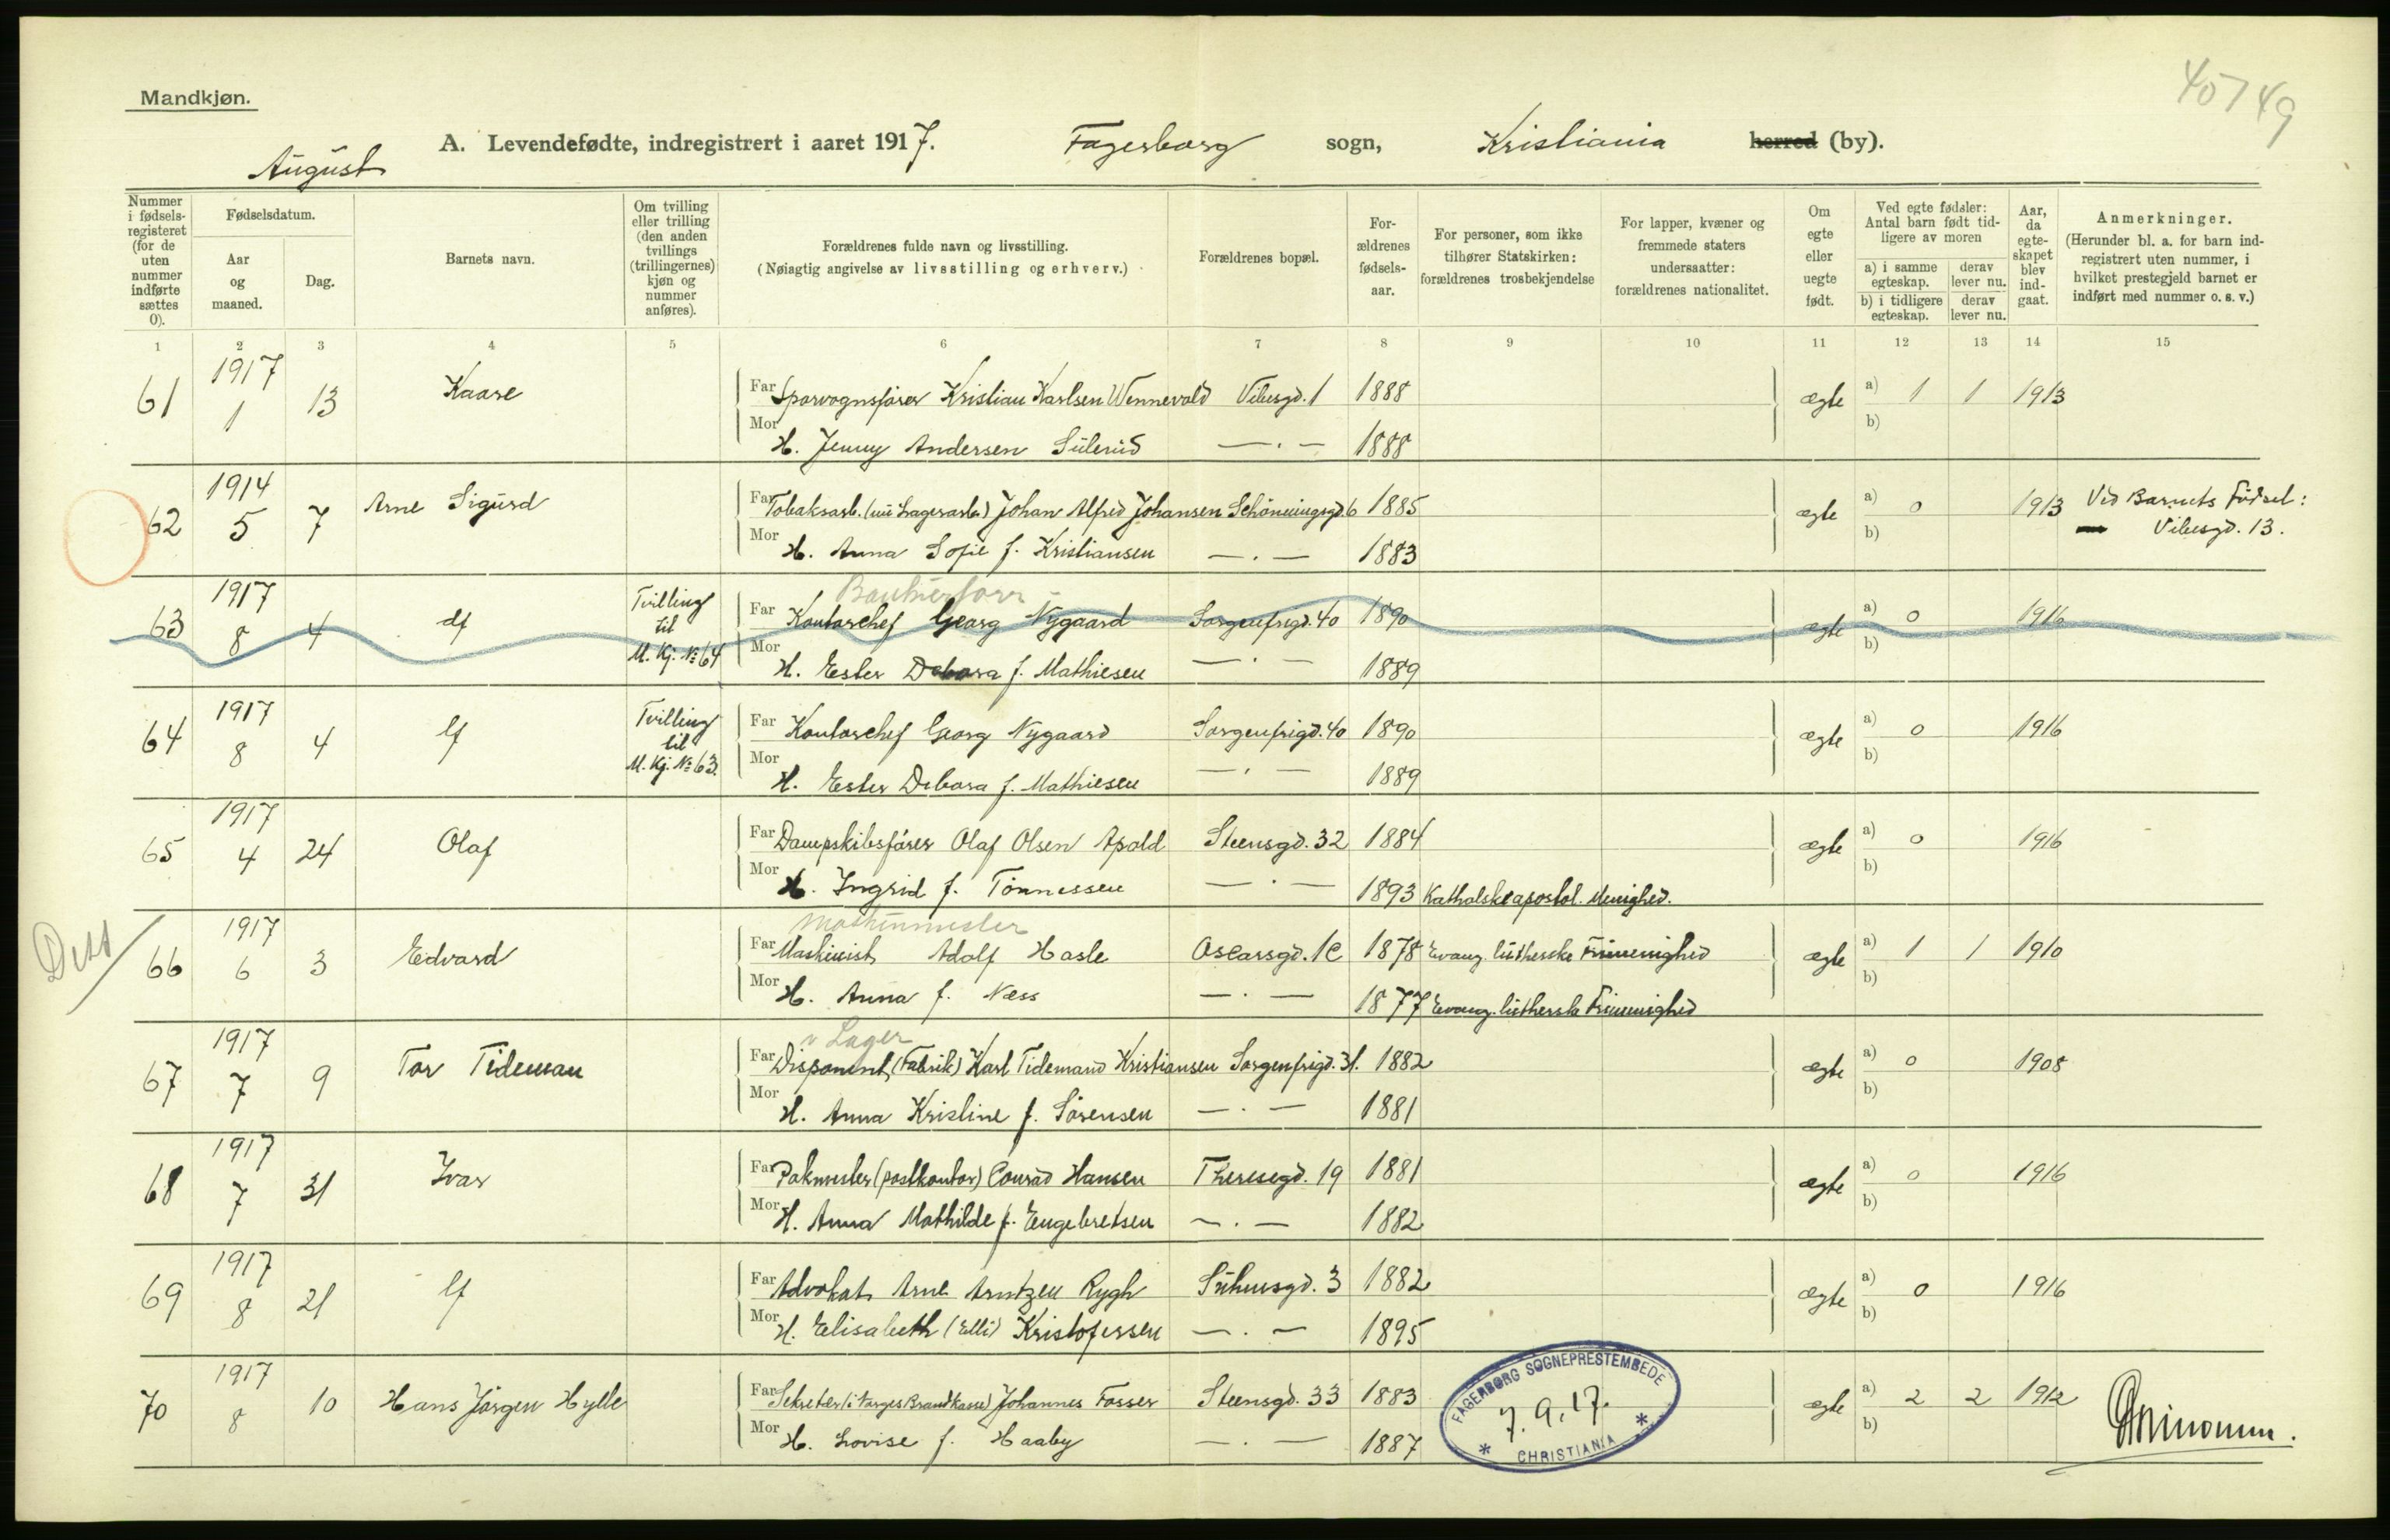 40749
Mandkjøn.
A. Levendefødte, indregistrert i aaret 1917. Fagerborg sogn, Kristiania herred (by).
August
Nummer i fødsels-registeret (for de uten nummer indførte sættes 0).
Fødselsdatum.
Aar og maaned.
Dag.
Barnets navn.
Om tvilling eller trilling (den anden tvillings (trillingernes) kjøn og nummer anføres).
Forældrenes fulde navn og livsstilling.
(Nøiagtig angivelse av livsstilling og erhverv.)
Forældrenes bopæl.
For-ældrenes fødsels-aar.
For personer, som ikke tilhører Statskirken: forældrenes trosbekjendelse
For lapper, kvæner og fremmede staters undersaatter: forældrenes nationalitet.
Om egte eller uegte født.
Ved egte fødsler: Antal barn født tid-ligere av moren
a) i samme egteskap. derav lever nu.
b) i tidligere egteskap. derav lever nu.
Aar, da egte-skapet blev ind-gaat.
Anmerkninger.
(Herunder bl. a. for barn ind-registrert uten nummer, i hvilket prestegjeld barnet er indført med nummer o. s. v.)
1 2 3 4 5 6 7 8 9 10 11 12 13 14 15
1917
61 1 13 Kaare Far Sporvognsfører Kristian Karlsen Wennevold Vibesgd. 1 1888 ægte a) 1 1 1913
b)
Mor H. Jenny Andersen Sülerud — . — 1888
1914
62 5 7 Arne Sigurd Far Tobaksarb. (nu Lagerarb.) Johan Alfred Johansen Schöningsgd. 6 1885 ægte a) 0 1913 Ved Barnets Födsel:
b) Vibesgd. 13.
Mor H. Anna Sofie f. Kristiansen — . — 1883
1917 Tvilling
63 8 4 df til Far Kontorchef Georg Nygaard Sorgenfrigd. 40 1890 ægte a) 0 1916
M. Kj. № 64 b)
Mor H. Ester Debora f. Mathiesen — . — 1889
1917 Tvilling
64 8 4 lf til Far Kontorchef Georg Nygaard Sorgenfrigd. 40 1890 ægte a) 0 1916
M. Kj. № 63. b)
Mor H. Ester Debora f. Mathiesen — . — 1889
1917
65 4 24 Olaf Far Dampskibsfører Olaf Olsen Apold Steensgd. 32 1884 ægte a) 0 1916
b)
Mor H. Ingrid f. Tönnessen — . — 1893 Katholskeapostol. Menighed.
1917 Maskinmester
66 6 3 Edvard Far Maskinist Adolf Hasle Oscarsgd. 1c 1878 Evang. lutherske Frimenighed ægte a) 1 1 1910
b)
Mor H. Anna f. Næss — . — 1877 Evang. lutherske Frimenighed
1917 v Lager
67 7 9 Tor Tideman Far Disponent (Fabrik) Karl Tidemand Kristiansen Sorgenfrigd. 31. 1882 ægte a) 0 1908
b)
Mor H. Anna Kristine f. Sörensen — . — 1881
1917
68 7 31 Ivar Far Pakmester (postkontor) Conrad Hansen Theresegd. 19 1881 ægte a) 0 1916
b)
Mor H. Anna Mathilde f. Engebretsen — . — 1882
1917
69 8 21 lf Far Advokat Arne Arntzen Rygh Suhmsgd. 3 1882 ægte a) 0 1916
b)
Mor H. Elisabeth (Elli) Kristofersen — . — 1895
1917
70 8 10 Hans Jörgen Hylle Far Sekretær (i Norges Brandkasse) Johannes Fosser Steensgd. 33 1883 ægte a) 2 2 1912
b)
Mor H. Lovise f. Haaby — . — 1887
FAGERBORG SOGNEPRESTEMBEDE
7.9.17.
* CHRISTIANIA *